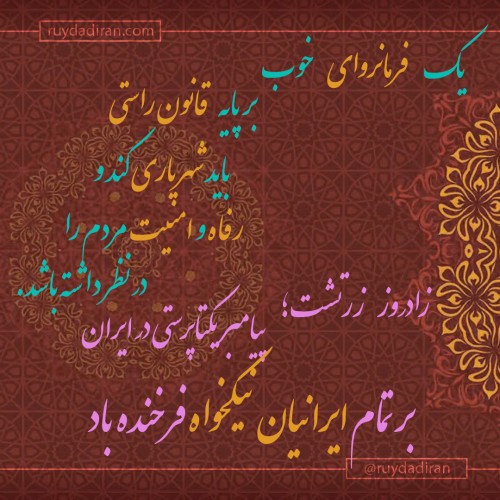 ruydadiran.com
یک فرمانروای خوب
بر پایه قانون راستی
باید شهریاری کند و
رفاه و امنیت مردم را
در نظر داشته باشد.
زادروز زرتشت؛
پیامبر یکتاپرستی در ایران
بر تمام ایرانیان نیکخواه فرخنده باد
@ruydadiran